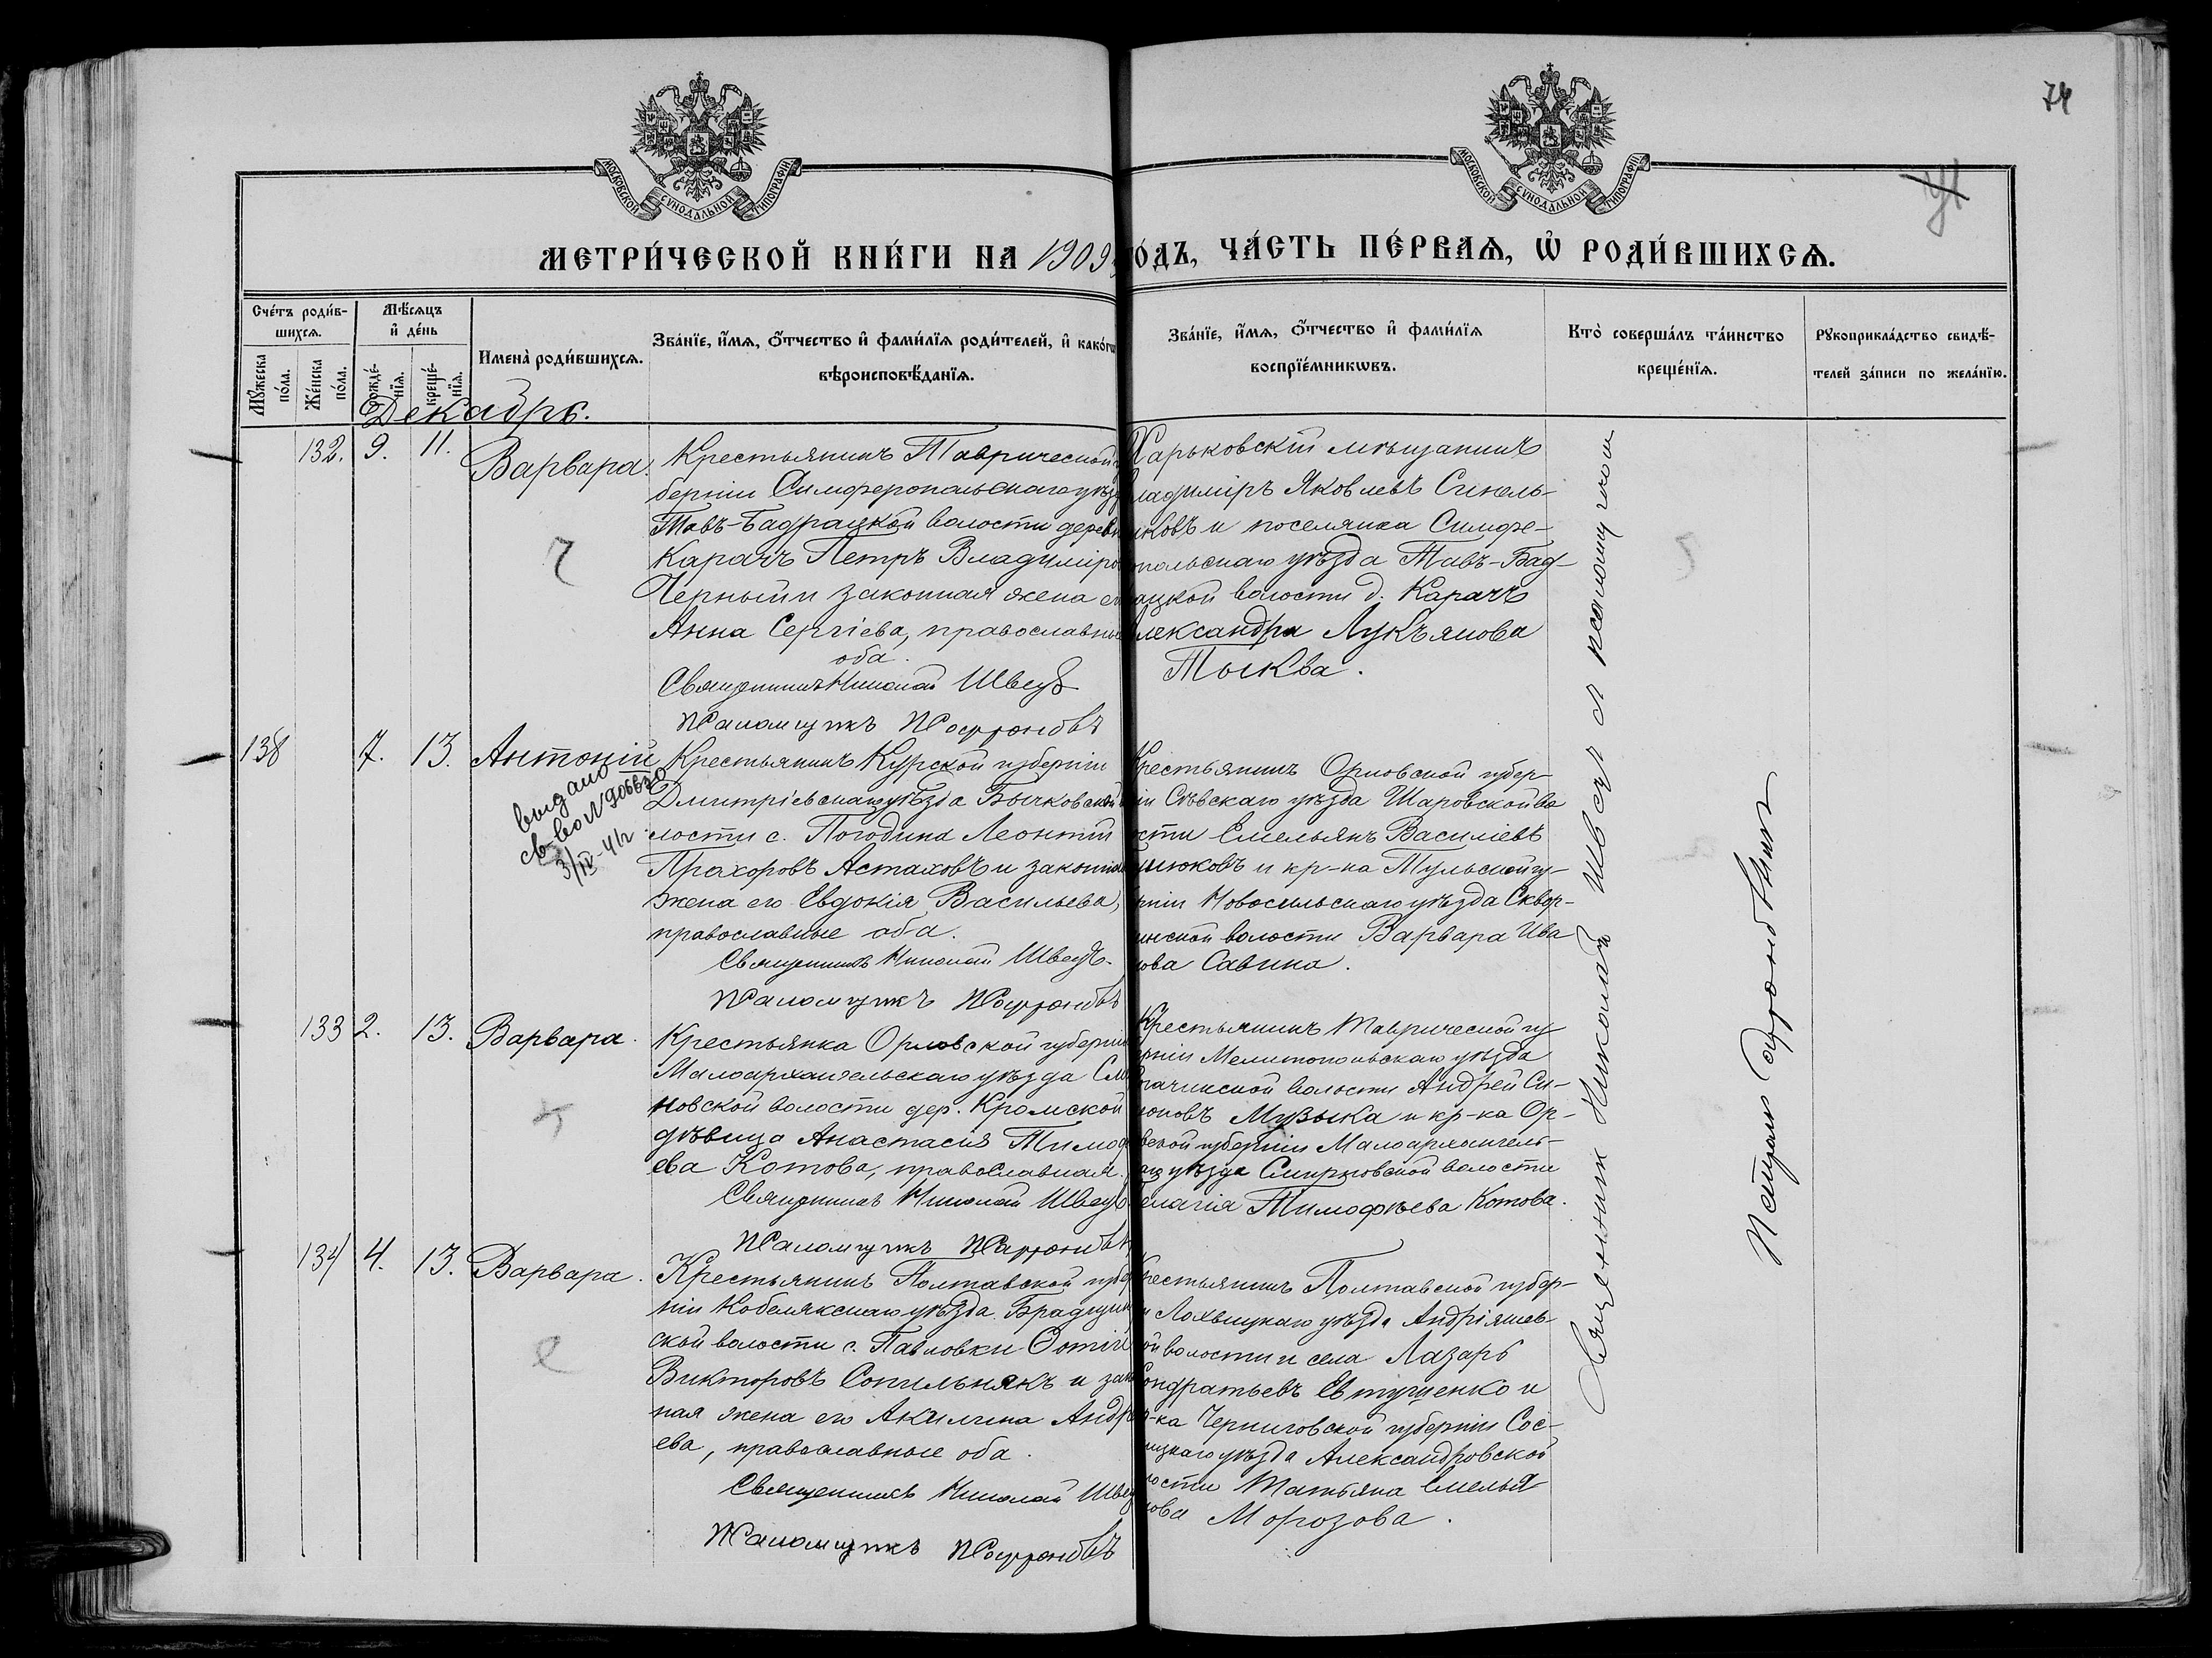 74
МОСКОВСКОЙ СѴНОДАЛЬНОЙ ТИПОГРАФІИ
МОСКОВСКОЙ СѴНОДАЛЬНОЙ ТИПОГРАФІИ
МЕТРИ́ЧЕСКОЙ КНИ́ГИ НА 1909 ГО́ДЪ, ЧА́СТЬ ПЕ́РВАѦ, Ѡ҆ РОДИ́ВШИХСѦ.
Сче́тъ роди́в-
шихсѧ.
Мꙋ́жеска по́ла.
Же́нска по́ла.
Мѣ́сѧцъ
и҆ де́нь
рожде́-
нїѧ.
креще́-
нїѧ.
Имена̀ роди́вшихсѧ.
Зва́нїе, и҆́мѧ, ѻ҆́тчество и҆ фами́лїѧ роди́телей, и҆ како́гѡ
вѣроисповѣ́данїѧ.
Зва́нїе, и҆́мѧ, ѻ҆́тчество и҆ фами́лїѧ
воспрїе́мникѡвъ.
Кто̀ соверша́лъ та́инство
креще́нїѧ.
Рꙋкоприкла́дство свидѣ́-
телей за́писи по жела́нїю.
Декабрь.
132. 9. 11. Варвара.
Крестьянинъ Таврической гу
берніи Симферопольскаго уѣзда
Тавъ-Бадрацкой волости деревн
Карачъ Петръ Владиміро
Черный и законная жена его
Анна Сергіева, православные
оба.
Священникъ Николай Швецъ
Псаломщикъ
Харьковскій мѣщанинъ
Владиміръ Яковлевъ Синель-
никовъ и поселянка Симфе-
ропольскаго уѣзда Тавъ-Бад-
рацкой волости д. Карачъ
Александра Лукъянова
Тыква.
138 7. 13. Антоній
выдано
св-во №
3/IV-41г
Крестьянинъ Курской губерніи
Дмитріевскаго уѣзда Бычковской во
лости с. Погодина Леонтій
Прохоровъ Астаховъ и законная
жена его Евдокія Васильева,
православные оба.
Священникъ Николай Швецъ.
Псаломщикъ
Крестьянинъ Орловской губер-
ніи Сѣвскаго уѣзда Шаровской во
лости Емельянъ Василіевъ
и кр-ка Тульской гу-
берніи Новосильскаго уѣзда Сквор-
чинской волости Варвара Ива
нова Савина.
133 2. 13. Варвара.
Крестьянка Орловской губерніи
Малоархангельскаго уѣзда См
новской волости дер. Кромской
дѣвица Анастасія Тимоф
ева Котова, православная.
Священникъ Николай Швецъ
Псаломщикъ
Крестьянинъ Таврической гу
берніи Мелитопольскаго уѣзда
волости Андрей Си-
моновъ Музыка и кр-ка Ор-
ловской губерніи Малоархангель-
скаго уѣзда Смирновской волости
Пелагія Тимофѣева Котова.
134 4. 13. Варвара.
Крестьянинъ Полтавской губер
ніи Кобелякскаго уѣзда
ской волости с. Павловки Фотій
Викторовъ Сопильнякъ и закон
ная жена его Акилина Андр
ева, православные оба.
Священникъ Николай Швец
Псаломщикъ
Крестьянинъ Полтавской губер-
ніи Лохвицкаго уѣзда Андріяшев-
ской волости и села Лазарь
Кондратьевъ Евтушенко и
кр-ка Черниговской губерніи Сос-
ницкаго уѣзда Александровской
волости Татьяна Емелья
нова Морозова.
Священникъ Николай Швецъ с псаломщикомъ